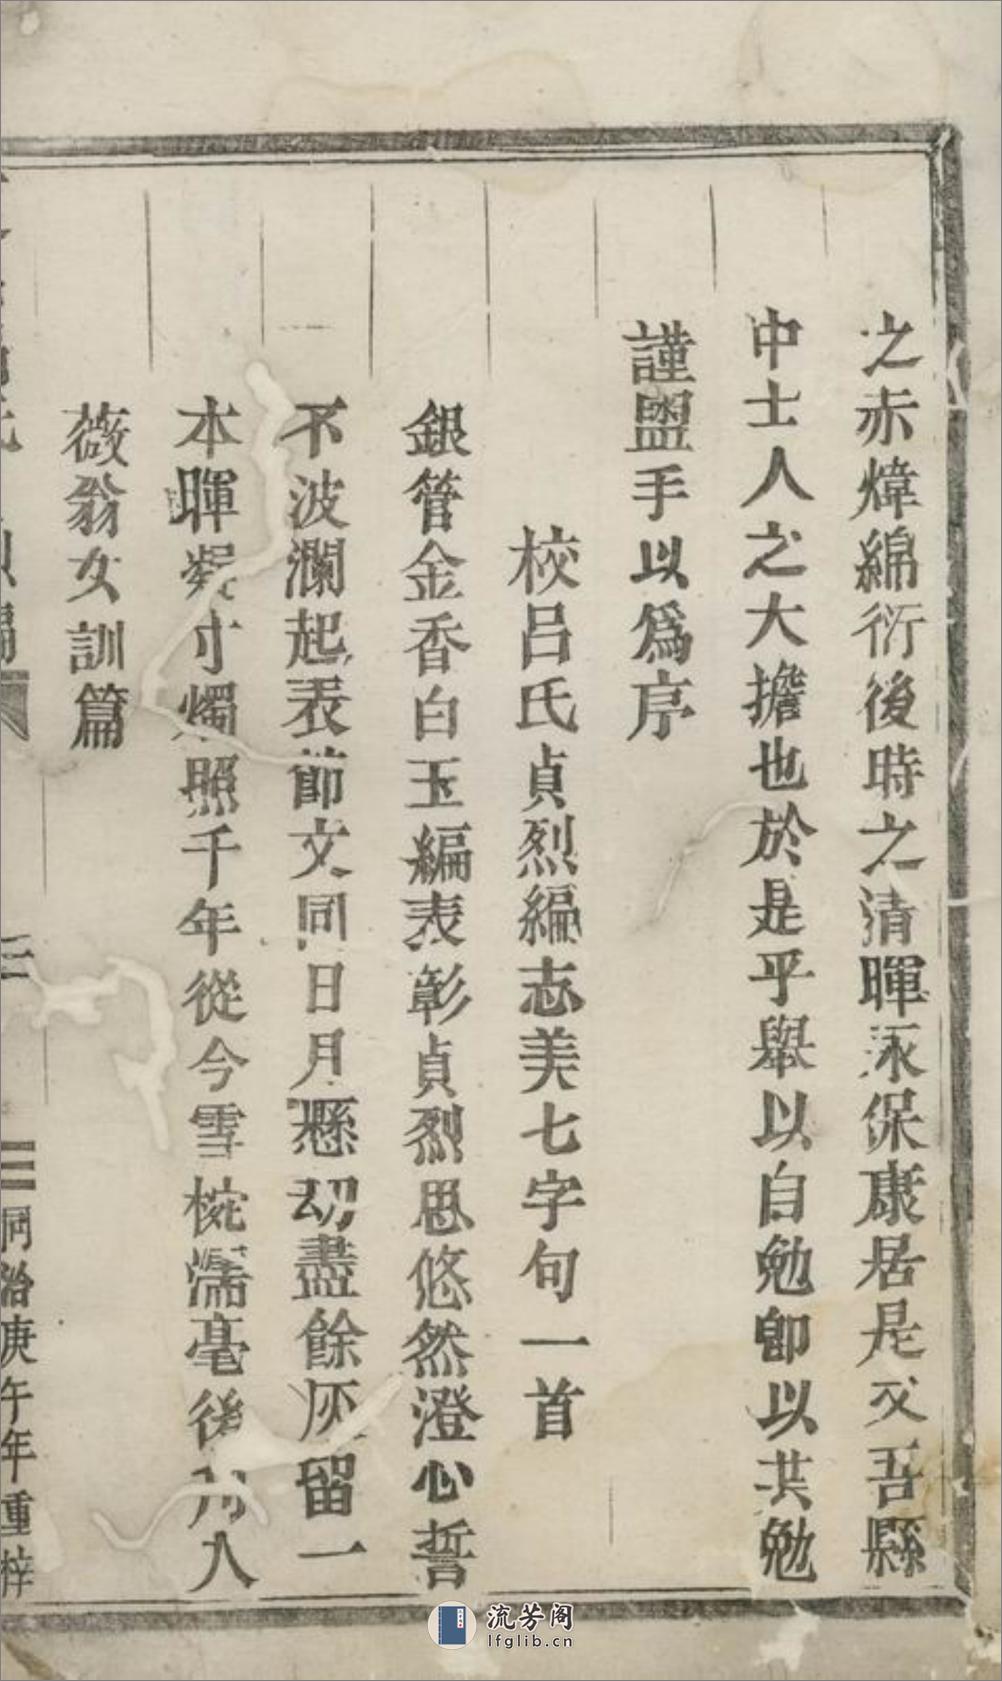 之赤煒綿衍後時之清暉永保康居是父吾縣
中士人之大擔也於是乎舉以自勉卽以共勉
謹盥手以爲序
校呂氏貞烈編志美七字句一首
銀管金香白玉編表彰貞烈思悠然澄心誓
不波瀾起表節文同日月懸刧盡餘灰留一
本暉凝寸燭照千年從今雪椀濡毫後
薇翁女訓篇
二
同治庚午年重梓
流芳阁
lfglib.cn